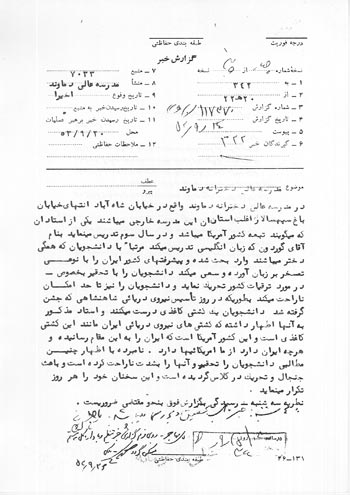 درجه فوریت
طبقه بندی حفاظتی
گزارش خبر
نسخه شماره از نسخه
۱ - به ۳۲۲
۲ - از ۲۰ هـ ۲۲
۳ - شماره گزارش
۴ - تاریخ گزارش
۵ - پیوست
۶ - گیرندگان خبر ۳۲۲
۷ - منبع ۷۰۳۳
۸ - منشأ مدرسه عالی دماوند
۹ - تاریخ وقوع اخیرا
۱۰ - تاریخ رسیدن خبر به منبع
۱۱ - تاریخ رسیدن خبر برهبر عملیات
محل ۵۳/۹/۲۰
۱۲ - ملاحظات حفاظتی
موضوع مدرسه عالی دخترانه دماوند
عطف
پیرو
در مدرسه عالی دخترانه دماوند واقع در خیابان شاه آباد انتهای خیابان
باغ سپهسالار اغلب استادان این مدرسه خارجی میباشند یکی از استادان
که میگویند تبعه کشور آمریکا میباشد و در سال سوم تدریس مینماید بنام
آقای گوردون که زبان انگلیسی تدریس میکند مرتبا" با دانشجویان که همگی
دختر میباشند وارد بحث شده و پیشرفتهای کشور ایران را با نوعی
تمسخر بر زبان آورده و سعی میکند دانشجویان را با تحقیر بخصوص -
در مورد ترقیات کشور تحریک نماید و دانشجویان را نیز تا حد امکان
ناراحت میکند بطوریکه در روز تأسیس نیروی دریائی شاهنشاهی که جشن
گرفته شد دانشجویان یک کشتی کاغذی درست میکنند و استاد مذکور
به آنها اظهار داشته که کشتی های نیروی دریائی ایران مانند این کشتی
کاغذی است و این کشور آمریکا است که ایران را به این مقام رسانیده و
هرچه ایران دارد از ما امریکائیها دارد . نامبرده با اظهار چنیـن
مطالبی دانشجویان را تحقیر و آنها را بشدت ناراحت کرده است و باعث
جنجال و تحریک در کلاس گردیده است و این سخنان خود را هر روز
تکرار مینماید .
نظریه سه شنبه - رسیدگی بگزارش فوق بنحو مقتضی ضروریست .
طبقه بندی حفاظتی
۲۶-۱۳۱